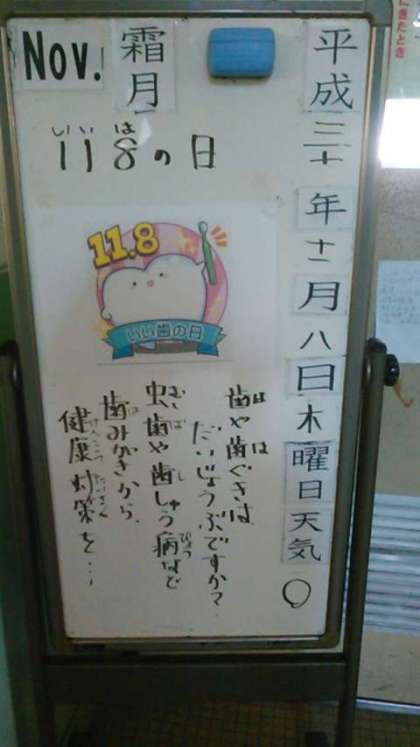 にきたとき
Nov.
霜月
平成三十年十一月八日木曜日天気〇
いい は
118の日
11.8
いい歯の日
歯や歯ぐきは
だいじょうぶですか?
虫歯や歯しゅう病など
歯みがきから
健康対策を…